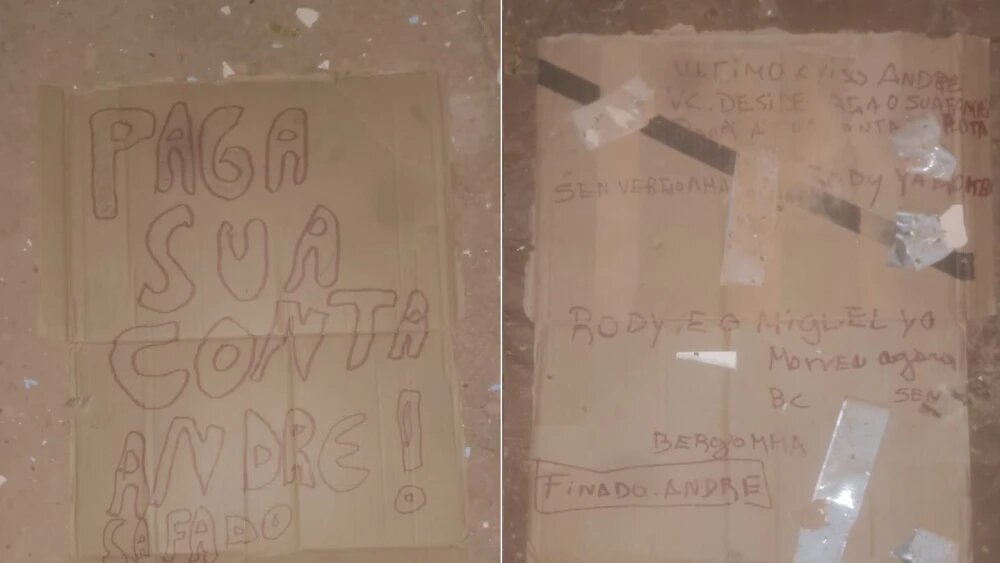 PAGA
SUA
CONTA
ANDRE!
SAFADO
ULTIMO AVISO ANDRE
VC. DESIDE PAGA O SUA
SEN VERGOMHA
RODY. E O MIGUEL YO
MORREU agora
BC SEN
BERGOMHA
FINADO.ANDRE